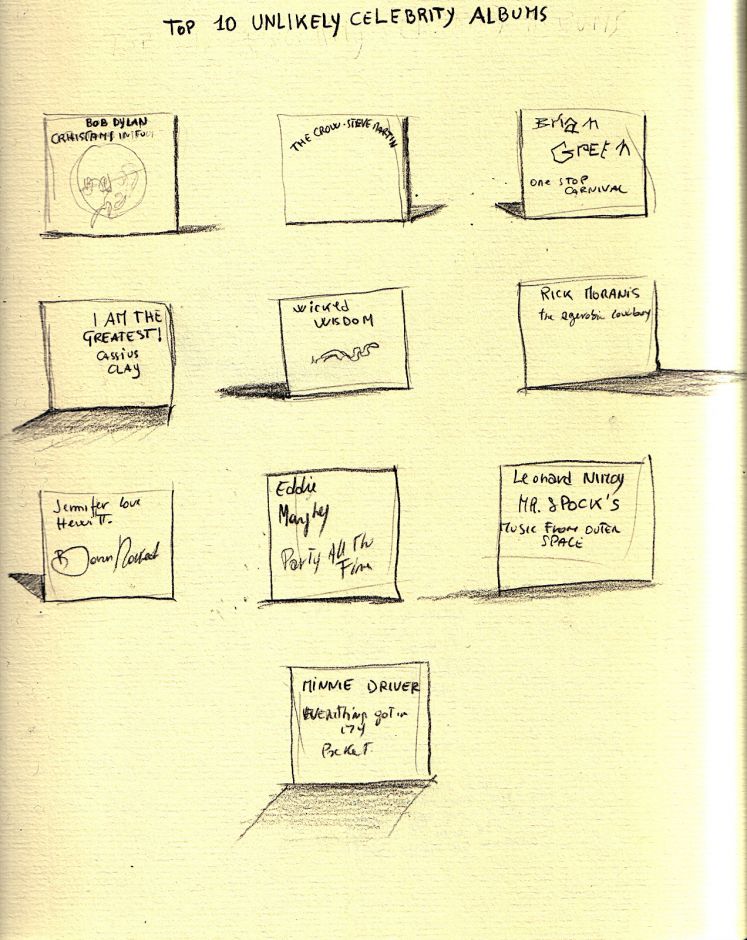 TOP 10 UNLIKELY CELEBRITY ALBUMS
BOB DYLAN
THE CROW - STEVE MARTIN
BRIAN
GREEN
ONE STOP
CARNIVAL
I AM THE
GREATEST!
CASSIUS
CLAY
WICKED
WISDOM
RICK MORANIS
the agerobic cowboy
Jennifer Love
Hewitt.
Eddie
Party All The
Leonard Nimoy
MR. SPOCK'S
MUSIC FROM OUTER
SPACE
MINNIE DRIVER
EVERYthing got in
my
Pocket.